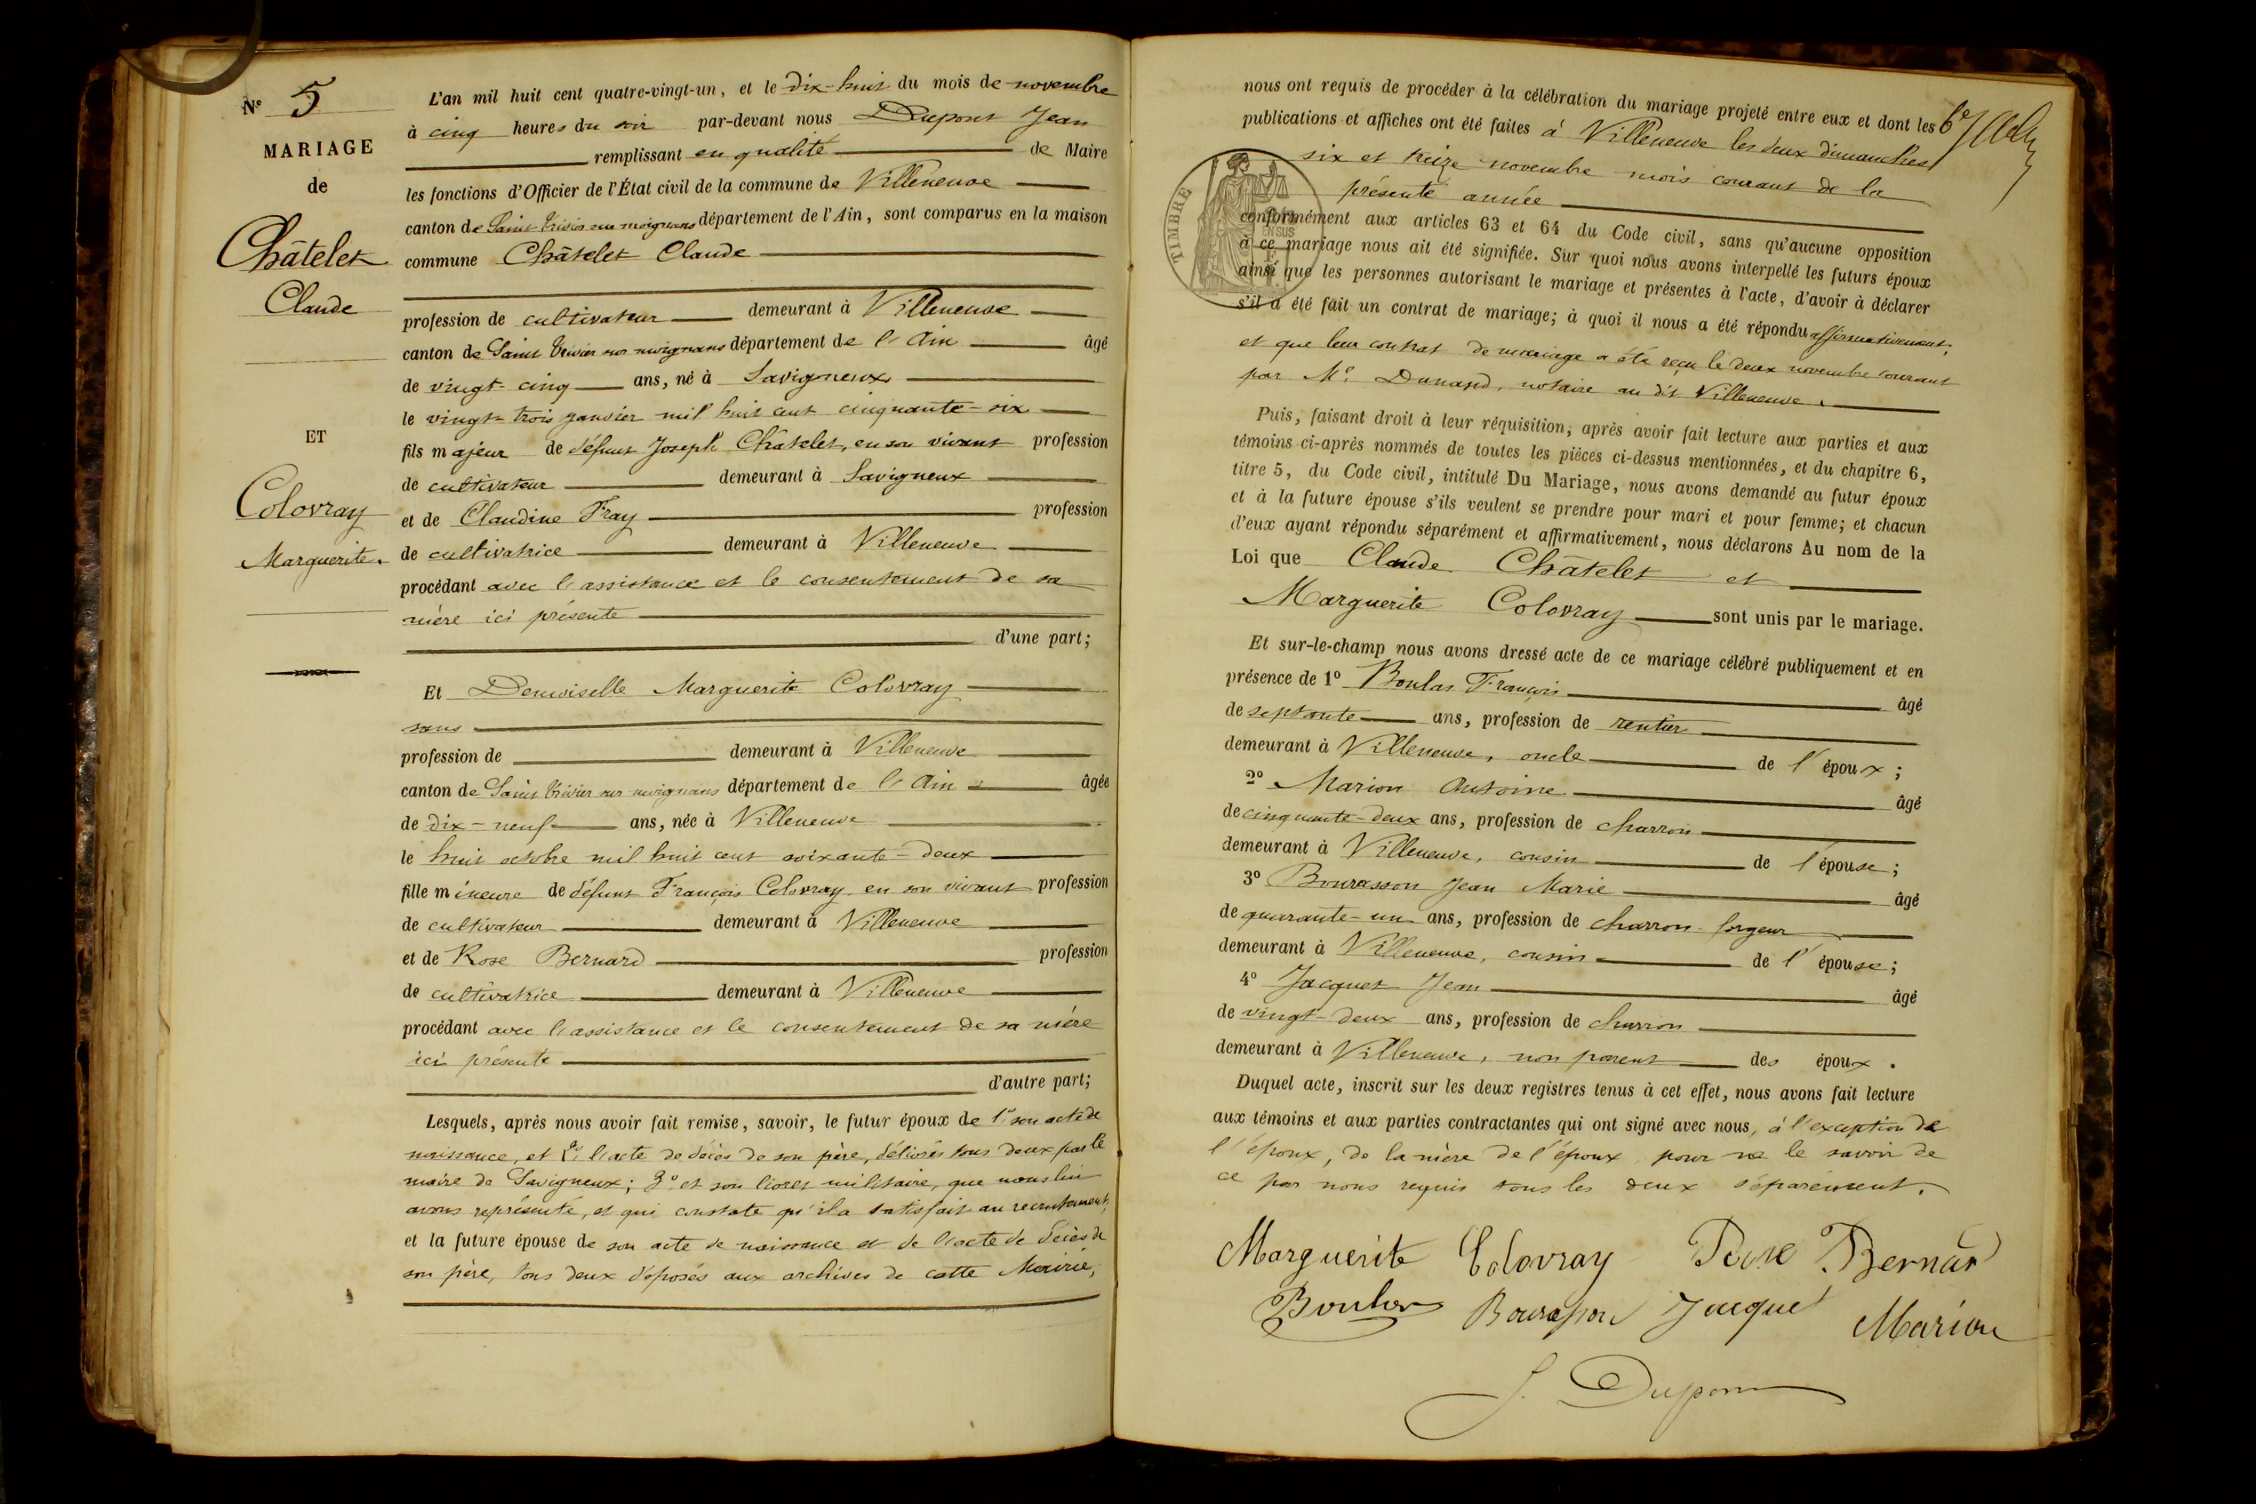 N° 5
MARIAGE
de
Châtelet
Claude
ET
Colovray
Marguerite.
L'an mil huit cent quatre-vingt-un, et le dix-huit du mois de novembre
à cinq heures du soir par-devant nous Dupont Jean
remplissant en qualité de Maire
les fonctions d'Officier de l'État civil de la commune de Villeneuve
canton de Saint Trivier sur moignans département de l'Ain, sont comparus en la maison
commune Châtelet Claude
profession de cultivateur demeurant à Villeneuve
canton de Saint Trivier sur moignans département de l'Ain âgé
de vingt-cinq ans, né à Savigneux
le vingt-trois janvier mil huit cent cinquante-six
fils majeur de défunt Joseph Châtelet, en son vivant profession
de cultivateur demeurant à Savigneux
et de Claudine Fray profession
de cultivatrice demeurant à Villeneuve
procédant avec l'assistance et le consentement de sa
mère ici présente
d'une part;
Et Demoiselle Marguerite Colovray
sans
profession de demeurant à Villeneuve
canton de Saint Trivier sur moignans département de l'Ain âgée
de dix-neuf ans, née à Villeneuve
le huit octobre mil huit cent soixante-deux
fille mineure de défunt François Colovray en son vivant profession
de cultivateur demeurant à Villeneuve
et de Rose Bernard profession
de cultivatrice demeurant à Villeneuve
procédant avec l'assistance et le consentement de sa mère
ici présente
d'autre part;
Lesquels, après nous avoir fait remise, savoir, le futur époux de 1° son acte de
naissance, et 2° l'acte de décès de son père, délivrés tous deux par le
maire de Savigneux; 3° et son livret militaire, que nous lui
avons représenté, et qui constate qu'il a satisfait au recrutement;
et la future épouse de son acte de naissance et de l'acte de décès de
son père, tous deux déposés aux archives de cette Mairie,
nous ont requis de procéder à la célébration du mariage projeté entre eux et dont les
publications et affiches ont été faites à Villeneuve les deux dimanches
six et treize novembre mois courant de la
présente année
TIMBRE
EN SUS
conformément aux articles 63 et 64 du Code civil, sans qu'aucune opposition
à ce mariage nous ait été signifiée. Sur quoi nous avons interpellé les futurs époux
ainsi que les personnes autorisant le mariage et présentes à l'acte, d'avoir à déclarer
s'il a été fait un contrat de mariage; à quoi il nous a été répondu affirmativement,
et que leur contrat de mariage a été reçu le deux novembre courant
par Me. Dunand, notaire au dit Villeneuve.
Puis, faisant droit à leur réquisition, après avoir fait lecture aux parties et aux
témoins ci-après nommés de toutes les pièces ci-dessus mentionnées, et du chapitre 6,
titre 5, du Code civil, intitulé Du Mariage, nous avons demandé au futur époux
et à la future épouse s'ils veulent se prendre pour mari et pour femme; et chacun
d'eux ayant répondu séparément et affirmativement, nous déclarons Au nom de la
Loi que Claude Châtelet et
Marguerite Colovray sont unis par le mariage.
Et sur-le-champ nous avons dressé acte de ce mariage célébré publiquement et en
présence de 1° Boulas François âgé
de septante ans, profession de rentier
demeurant à Villeneuve, oncle de l'époux;
2° Marion Antoine âgé
de cinquante-deux ans, profession de charron
demeurant à Villeneuve, cousin de l'épouse;
3° Bourasson Jean Marie âgé
de quarante-un ans, profession de charron forgeur
demeurant à Villeneuve, cousin de l'épouse;
4° Jacquet Jean âgé
de vingt-deux ans, profession de charron
demeurant à Villeneuve, non parent des époux.
Duquel acte, inscrit sur les deux registres tenus à cet effet, nous avons fait lecture
aux témoins et aux parties contractantes qui ont signé avec nous, à l'exception de
l'époux, de la mère de l'époux pour ne le savoir de
ce par nous requis tous les deux séparément.
Marguerite Colovray Rose Bernard
Boulas Bourasson Jacquet Marion
J. Dupont